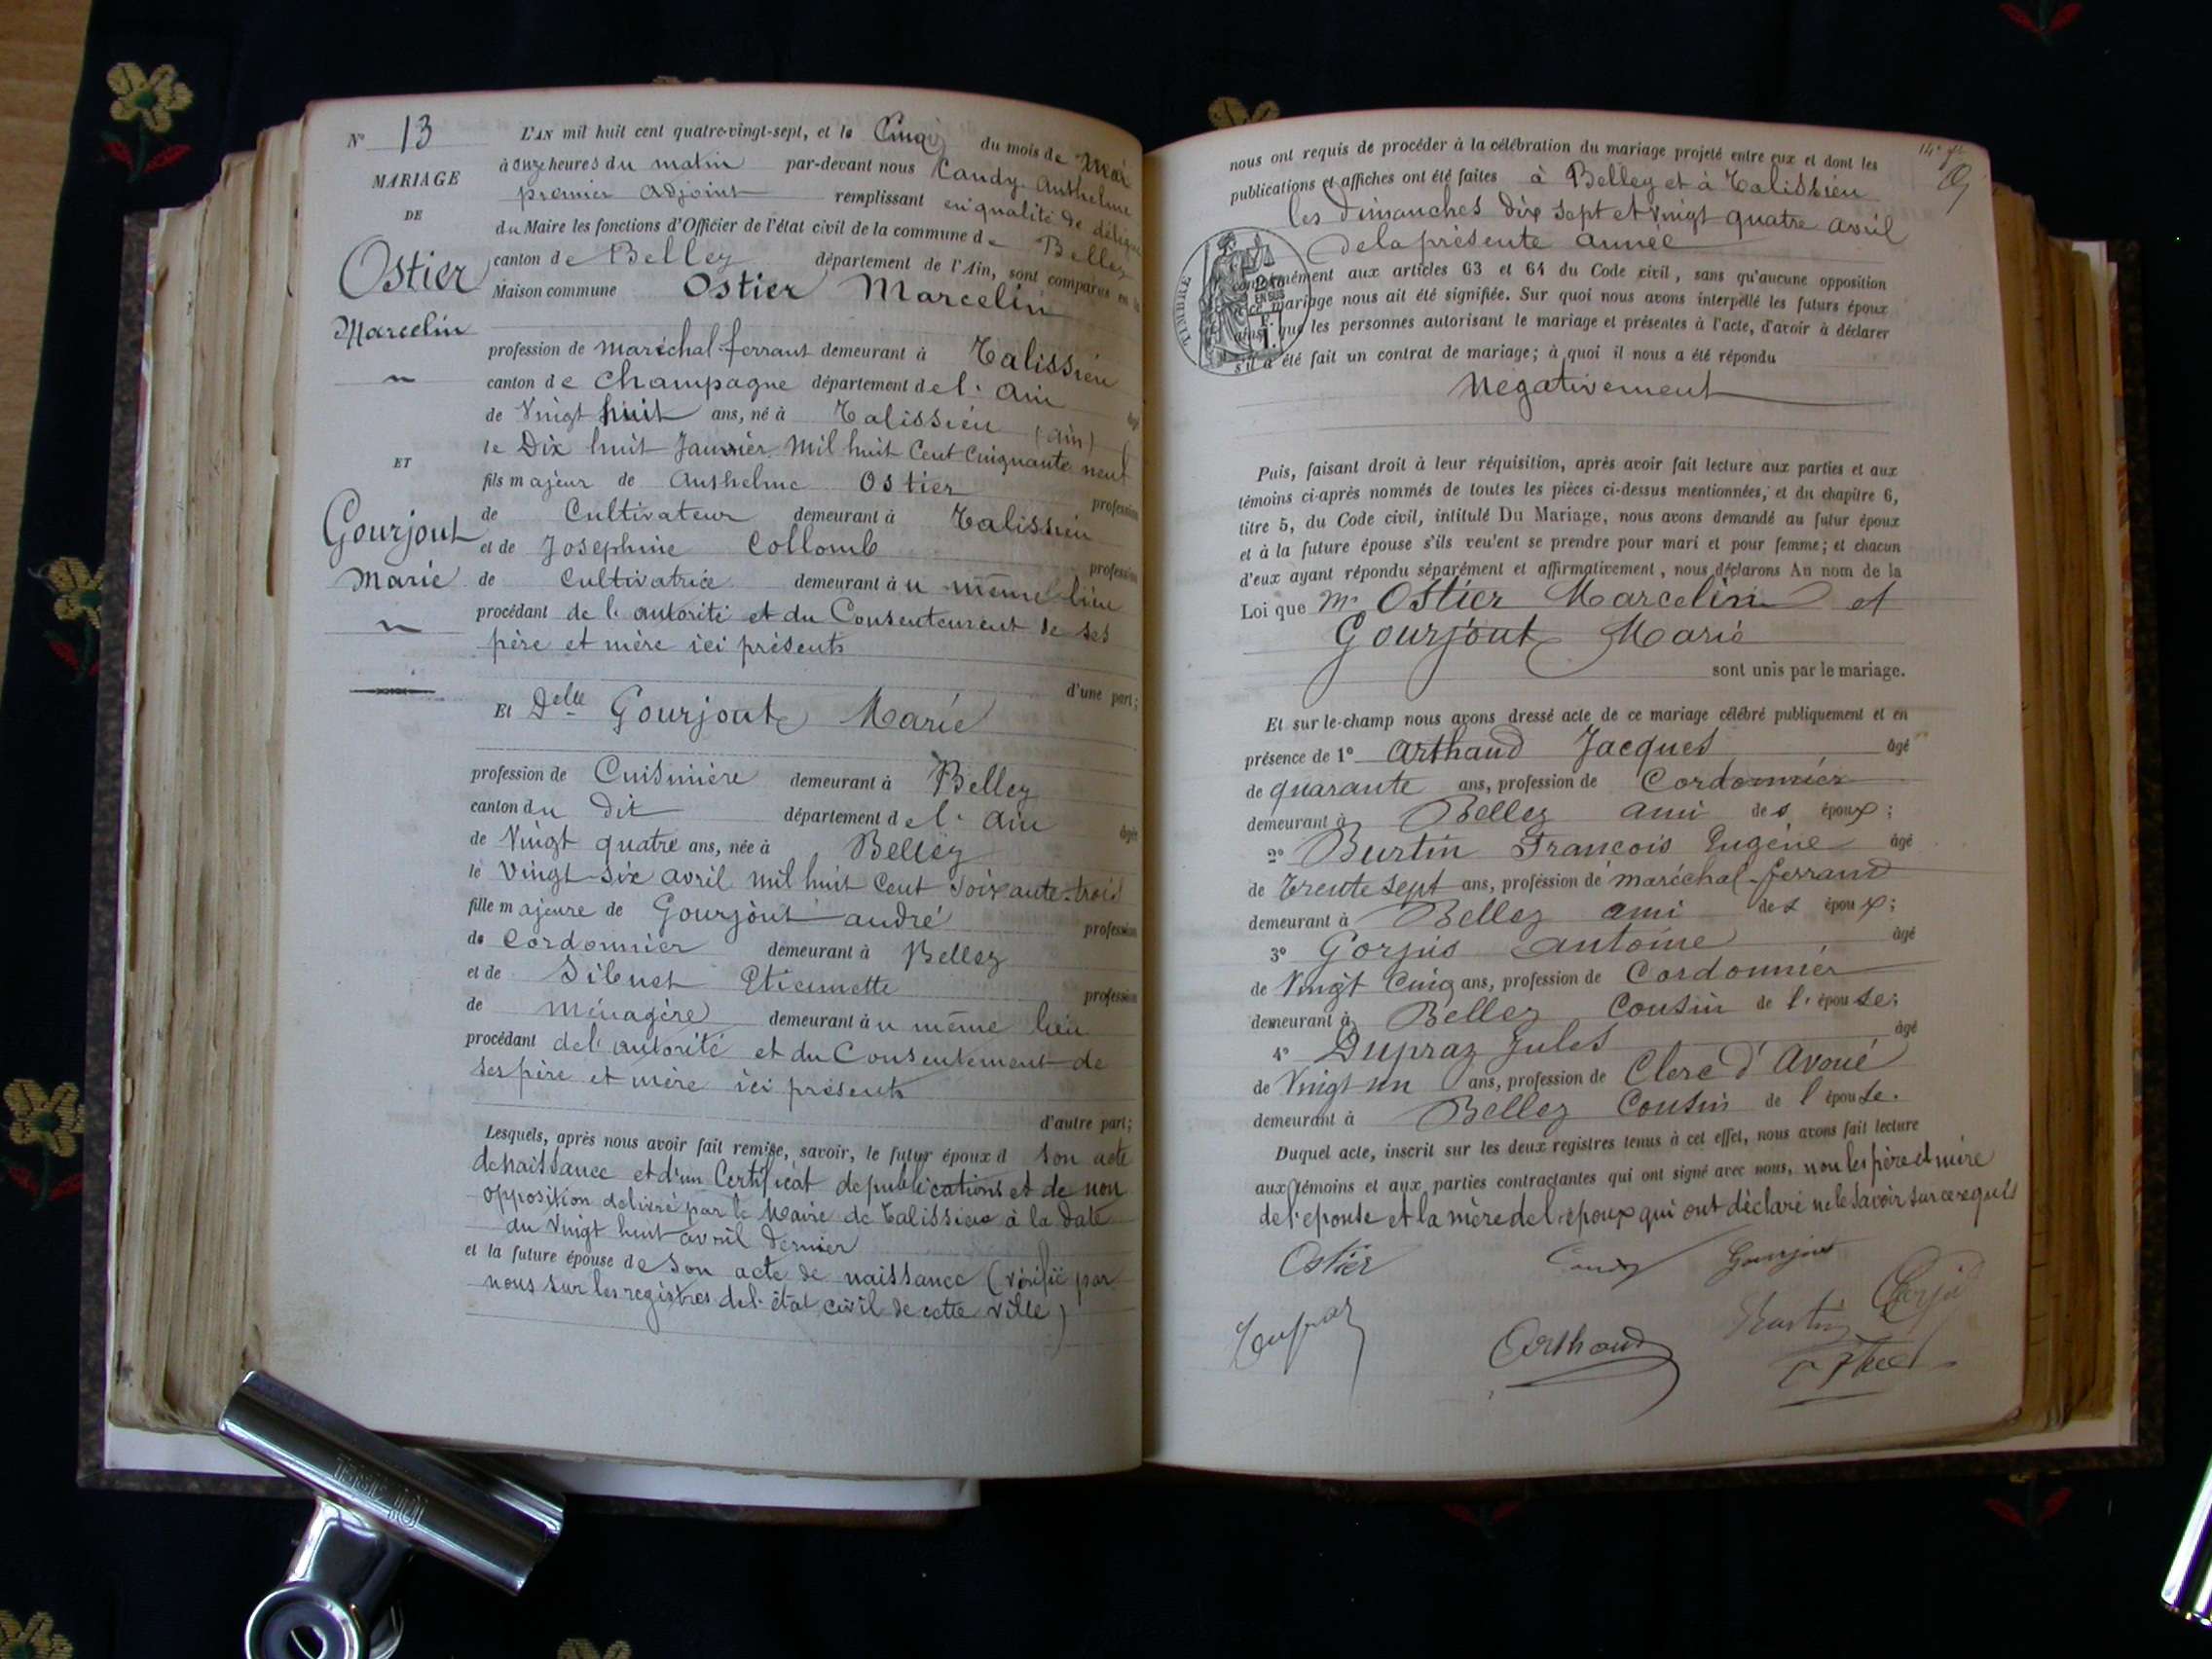 N° 13
MARIAGE
DE
Ostier
Marcelin
ET
Gourjout
Marie
L'AN mil huit cent quatre-vingt-sept, et le Cinq du mois de Mai
à onze heures du matin par-devant nous Candy Anthelme
premier adjoint remplissant en qualité de délégué
du Maire les fonctions d'Officier de l'état civil de la commune de Belley
canton de Belley département de l'Ain, sont comparus en la
Maison commune Ostier Marcelin
profession de maréchal-ferrant demeurant à Talissieu
canton de Champagne département de l'Ain âgé
de Vingt huit ans, né à Talissieu (ain)
le Dix huit Janvier Mil huit Cent Cinquante neuf
fils majeur de Anthelme Ostier profession
de Cultivateur demeurant à Talissieu
et de Josephine Collomb profession
de Cultivatrice demeurant à u même lieu
procédant de l'autorité et du Consentement de ses
père et mère ici présents
d'une part;
Et Delle Gourjout Marie
profession de Cuisinière demeurant à Belley
canton du dit département de l'Ain âgée
de Vingt quatre ans, née à Belley
le Vingt-six avril mil huit Cent Soixante-trois
fille majeure de Gourjout andré profession
de Cordonnier demeurant à Belley
et de Sibuet Etiennette profession
de Ménagère demeurant à u même lieu
procédant de l'autorité et du Consentement de
ses père et mère ici présents
d'autre part;
Lesquels, après nous avoir fait remise, savoir, le futur époux d son acte
de naissance et d'un Certificat de publications et de non
opposition delivré par le Maire de Talissieu à la date
du Vingt huit avril dernier
et la future épouse de son acte de naissance (vérifié par
nous sur les registres de l'état civil de cette ville)
nous ont requis de procéder à la célébration du mariage projeté entre eux et dont les
publications et affiches ont été faites à Belley et à Talissieu
les Dimanches dix sept et vingt quatre avril
de la présente année
conformément aux articles 63 et 64 du Code civil, sans qu'aucune opposition
à ce mariage nous ait été signifiée. Sur quoi nous avons interpellé les futurs époux
ainsi que les personnes autorisant le mariage et présentes à l'acte, d'avoir à déclarer
s'il a été fait un contrat de mariage; à quoi il nous a été répondu
TIMBRE
EN SUS
Négativement
Puis, faisant droit à leur réquisition, après avoir fait lecture aux parties et aux
témoins ci-après nommés de toutes les pièces ci-dessus mentionnées, et du chapitre 6,
titre 5, du Code civil, intitulé Du Mariage, nous avons demandé au futur époux
et à la future épouse s'ils veulent se prendre pour mari et pour femme; et chacun
d'eux ayant répondu séparément et affirmativement, nous déclarons Au nom de la
Loi que Mr Ostier Marcelin et
Gourjout Marie
sont unis par le mariage.
Et sur-le-champ nous avons dressé acte de ce mariage célébré publiquement et en
présence de 1° Arthaud Jacques âgé
de quarante ans, profession de Cordonnier
demeurant à Belley ami des époux;
2° Burtin François Eugène âgé
de Trente sept ans, profession de maréchal-ferrand
demeurant à Belley ami des époux;
3° Gorjus antoine âgé
de Vingt Cinq ans, profession de Cordonnier
demeurant à Belley Cousin de l'épouse;
4° Dupraz Jules âgé
de Vingt un ans, profession de Clerc d'Avoué
demeurant à Belley Cousin de l'épouse.
Duquel acte, inscrit sur les deux registres tenus à cet effet, nous avons fait lecture
aux témoins et aux parties contractantes qui ont signé avec nous, non les père et mère
de l'épouse et la mère de l'époux qui ont déclaré ne le savoir sur ce requis
Ostier Candy Gourjout
Dupraz Arthaud Burtin